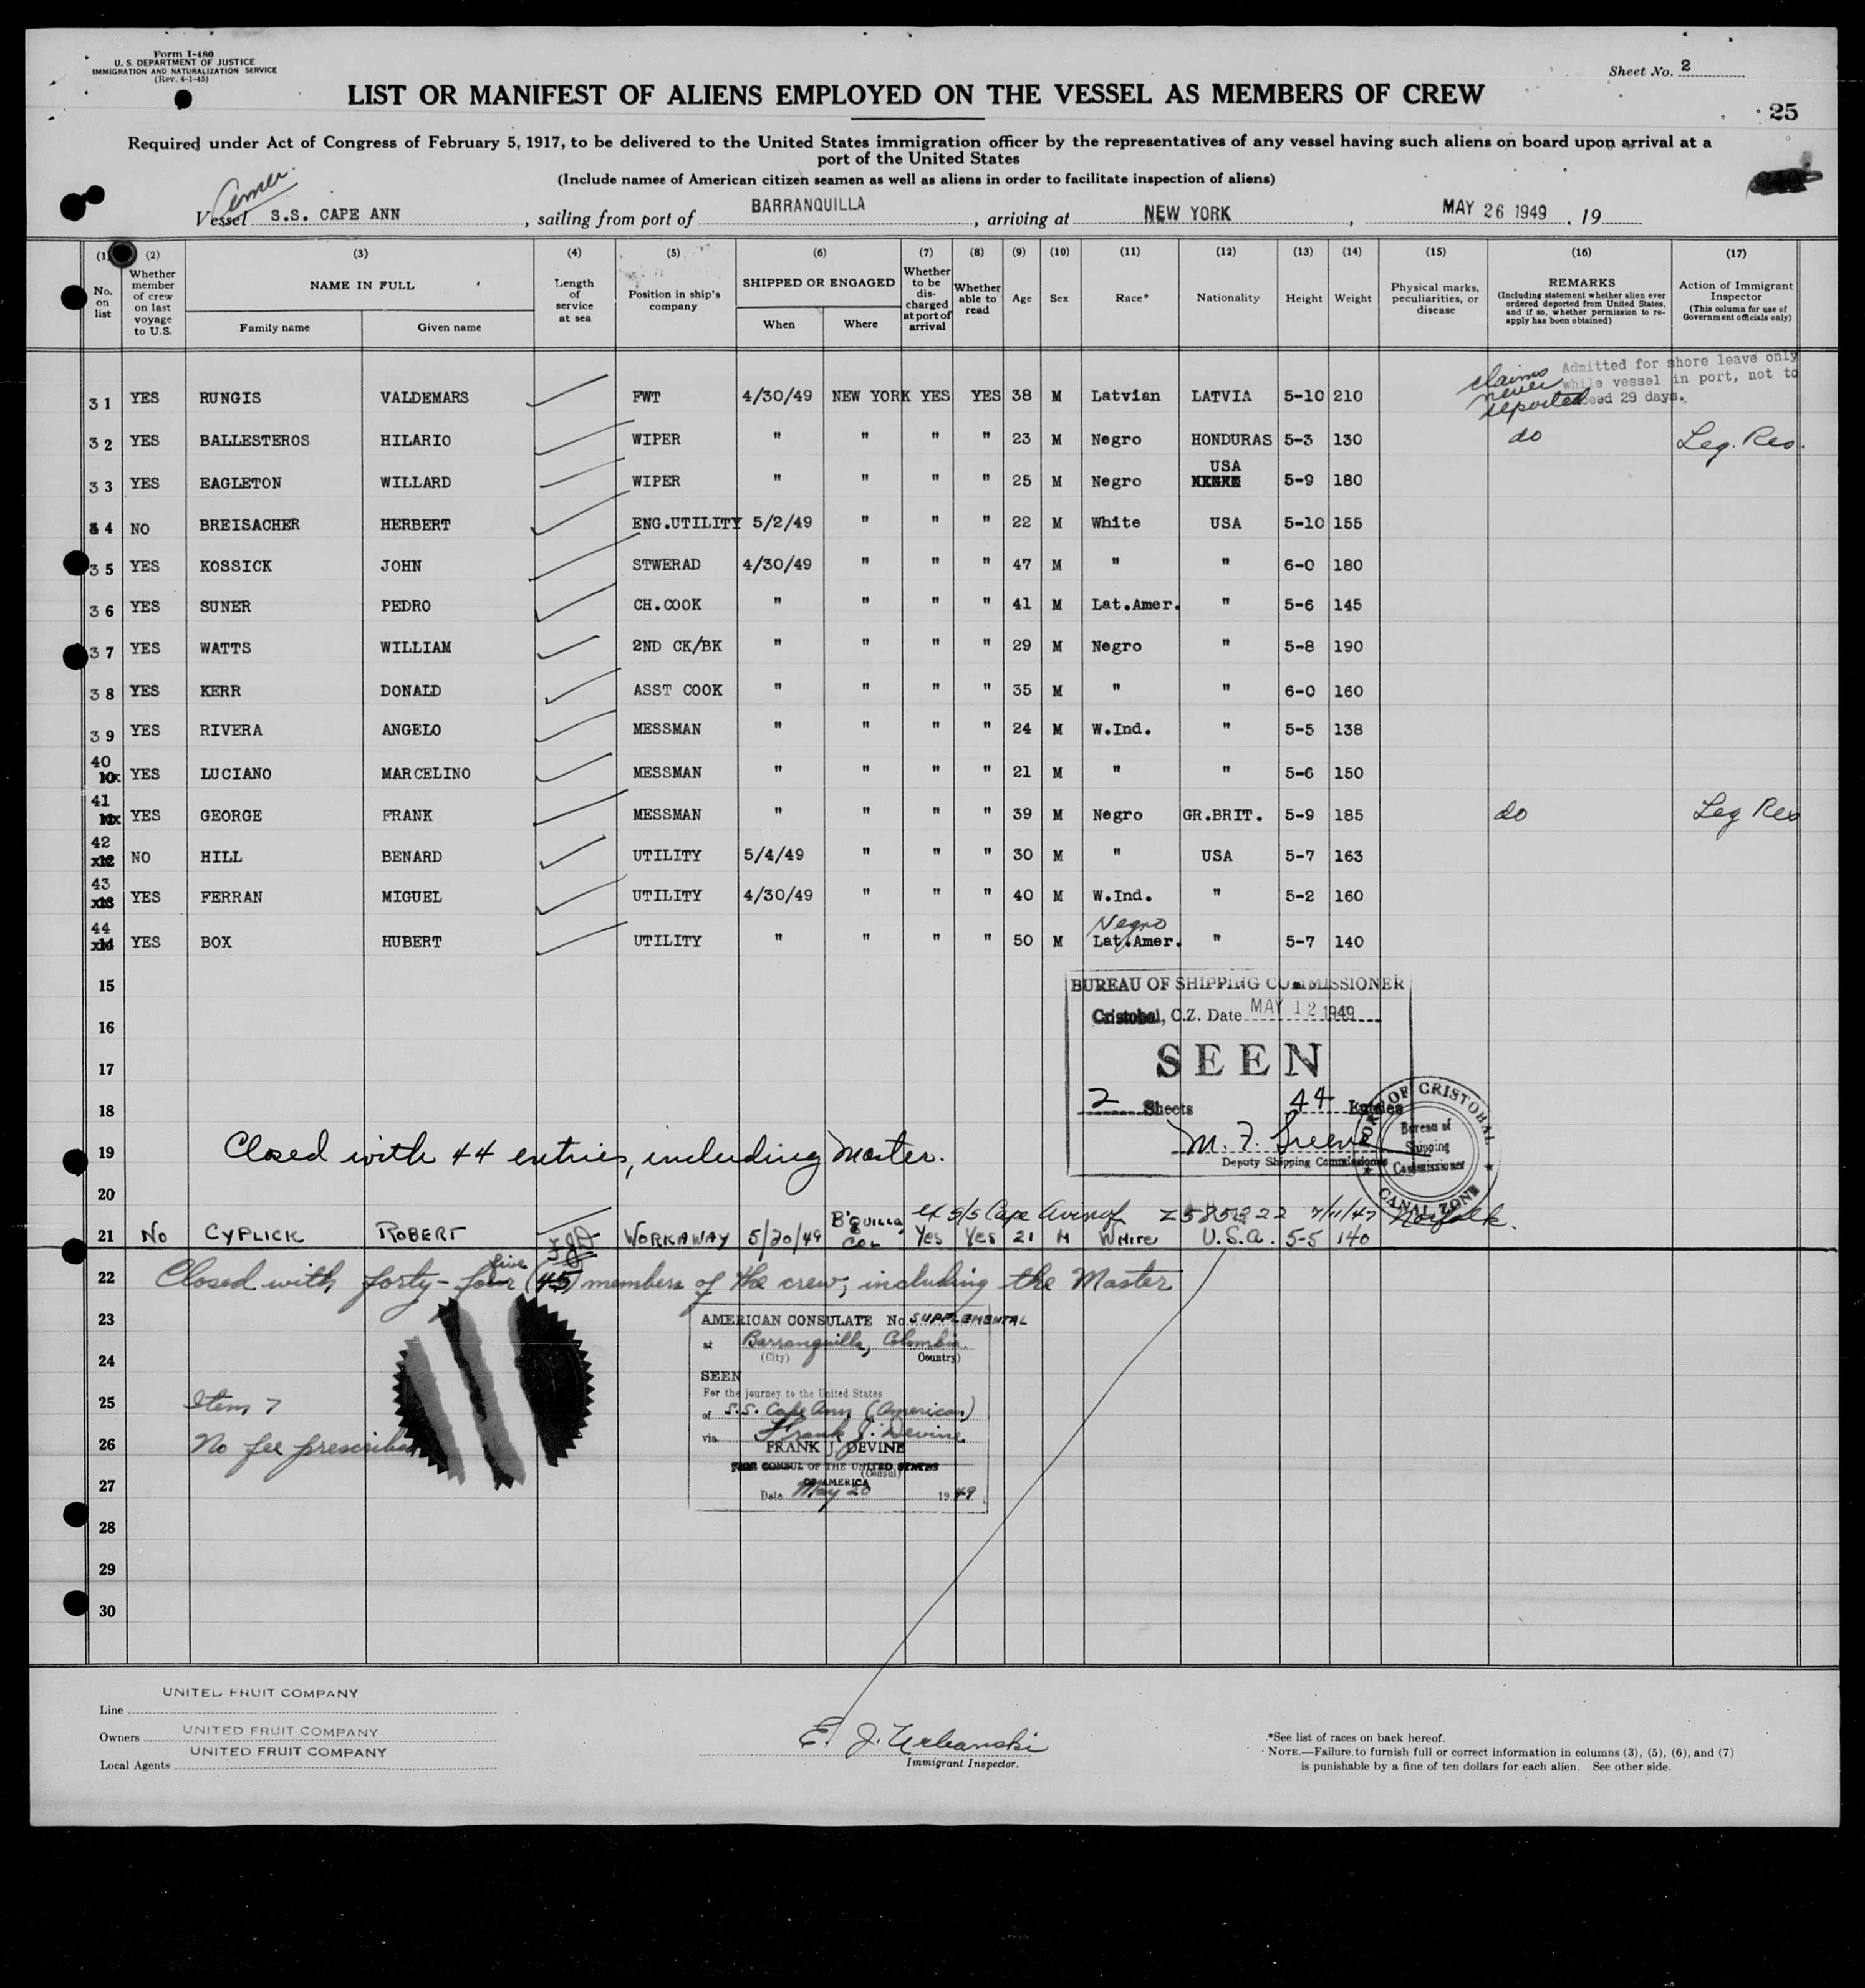 Form I-480
U. S. DEPARTMENT OF JUSTICE
IMMIGRATION AND NATURALIZATION SERVICE
(Rev. 4-1-45)
Sheet No. 2
LIST OR MANIFEST OF ALIENS EMPLOYED ON THE VESSEL AS MEMBERS OF CREW
25
Required under Act of Congress of February 5, 1917, to be delivered to the United States immigration officer by the representatives of any vessel having such aliens on board upon arrival at a
port of the United States
(Include names of American citizen seamen as well as aliens in order to facilitate inspection of aliens)
Amer.
Vessel S.S. CAPE ANN, sailing from port of BARRANQUILLA, arriving at NEW YORK, MAY 26 1949, 19
(1) (2) (3) (4) (5) (6) (7) (8) (9) (10) (11) (12) (13) (14) (15) (16) (17)
No. on list
Whether member of crew on last voyage to U.S.
NAME IN FULL
Family name Given name
Length of service at sea
Position in ship's company
SHIPPED OR ENGAGED
When Where
Whether to be discharged at port of arrival
Whether able to read
Age
Sex
Race*
Nationality
Height
Weight
Physical marks, peculiarities, or disease
REMARKS
(Including statement whether alien ever ordered deported from United States, and if so, whether permission to re-apply has been obtained)
Action of Immigrant Inspector
(This column for use of Government officials only)
Admitted for shore leave only
while vessel in port, not to
exceed 29 days.
claims never deported
31 YES RUNGIS VALDEMARS FWT 4/30/49 NEW YORK YES YES 38 M Latvian LATVIA 5-10 210
32 YES BALLESTEROS HILARIO WIPER " " " " 23 M Negro HONDURAS 5-3 130 do Leg. Res.
USA
33 YES EAGLETON WILLARD WIPER " " " " 25 M Negro 5-9 180
34 NO BREISACHER HERBERT ENG.UTILITY 5/2/49 " " " 22 M White USA 5-10 155
35 YES KOSSICK JOHN STWERAD 4/30/49 " " " 47 M " " 6-0 180
36 YES SUNER PEDRO CH.COOK " " " " 41 M Lat.Amer. " 5-6 145
37 YES WATTS WILLIAM 2ND CK/BK " " " " 29 M Negro " 5-8 190
38 YES KERR DONALD ASST COOK " " " " 35 M " " 6-0 160
39 YES RIVERA ANGELO MESSMAN " " " " 24 M W.Ind. " 5-5 138
40 YES LUCIANO MARCELINO MESSMAN " " " " 21 M " " 5-6 150
41 YES GEORGE FRANK MESSMAN " " " " 39 M Negro GR.BRIT. 5-9 185 do Leg Res
42 NO HILL BENARD UTILITY 5/4/49 " " " 30 M " USA 5-7 163
43 YES FERRAN MIGUEL UTILITY 4/30/49 " " " 40 M W.Ind. " 5-2 160
Negro
44 YES BOX HUBERT UTILITY " " " " 50 M Lat.Amer. " 5-7 140
15
BUREAU OF SHIPPING COMMISSIONER
Cristobal, C.Z. Date MAY 12 1949
16
SEEN
17
18
2 Sheets 44 Entries
M. F. Greene
Deputy Shipping Commissioner
PORT OF CRISTOBAL
Bureau of
Shipping
Commissioner
CANAL ZONE
19 Closed with 44 entries, including Master.
20
ex S/S Cape Avinof Z585222 7/11/47 Norfolk.
21 No CYPLICK ROBERT FJD WORKAWAY 5/20/49 B'QUILLA COL Yes Yes 21 M WHITE U.S.A. 5-5 140
five
22 Closed with forty-four (45) members of the crew, including the Master
23
AMERICAN CONSULATE No. SUPPLEMENTAL
at Barranquilla, Colombia.
(City) Country)
24
SEEN
For the journey to the United States
25 Item 7
of S.S. Cape Ann (American)
via Frank J. Devine
26 No fee prescribed
FRANK J. DEVINE
VICE CONSUL OF THE UNITED STATES
(Consul)
OF AMERICA
27
Date May 20 1949
28
29
30
Line UNITED FRUIT COMPANY
Owners UNITED FRUIT COMPANY
Local Agents UNITED FRUIT COMPANY
E. J. Urbanski
Immigrant Inspector.
*See list of races on back hereof.
NOTE.—Failure to furnish full or correct information in columns (3), (5), (6), and (7)
is punishable by a fine of ten dollars for each alien. See other side.